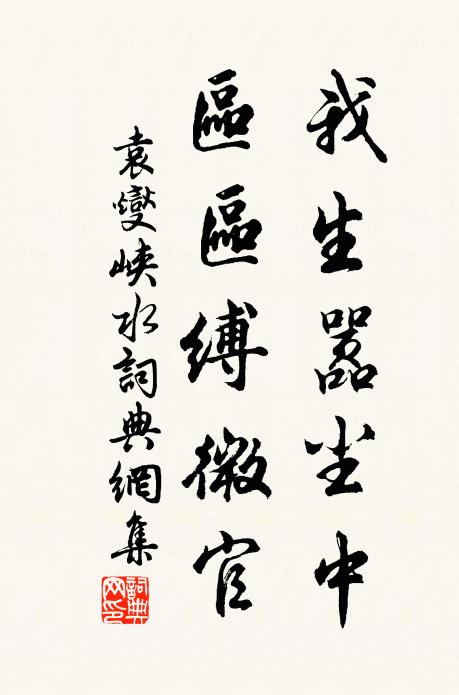 我生嚣尘中
區區縛微官
袁燮峽水詞典網集
詞典网印